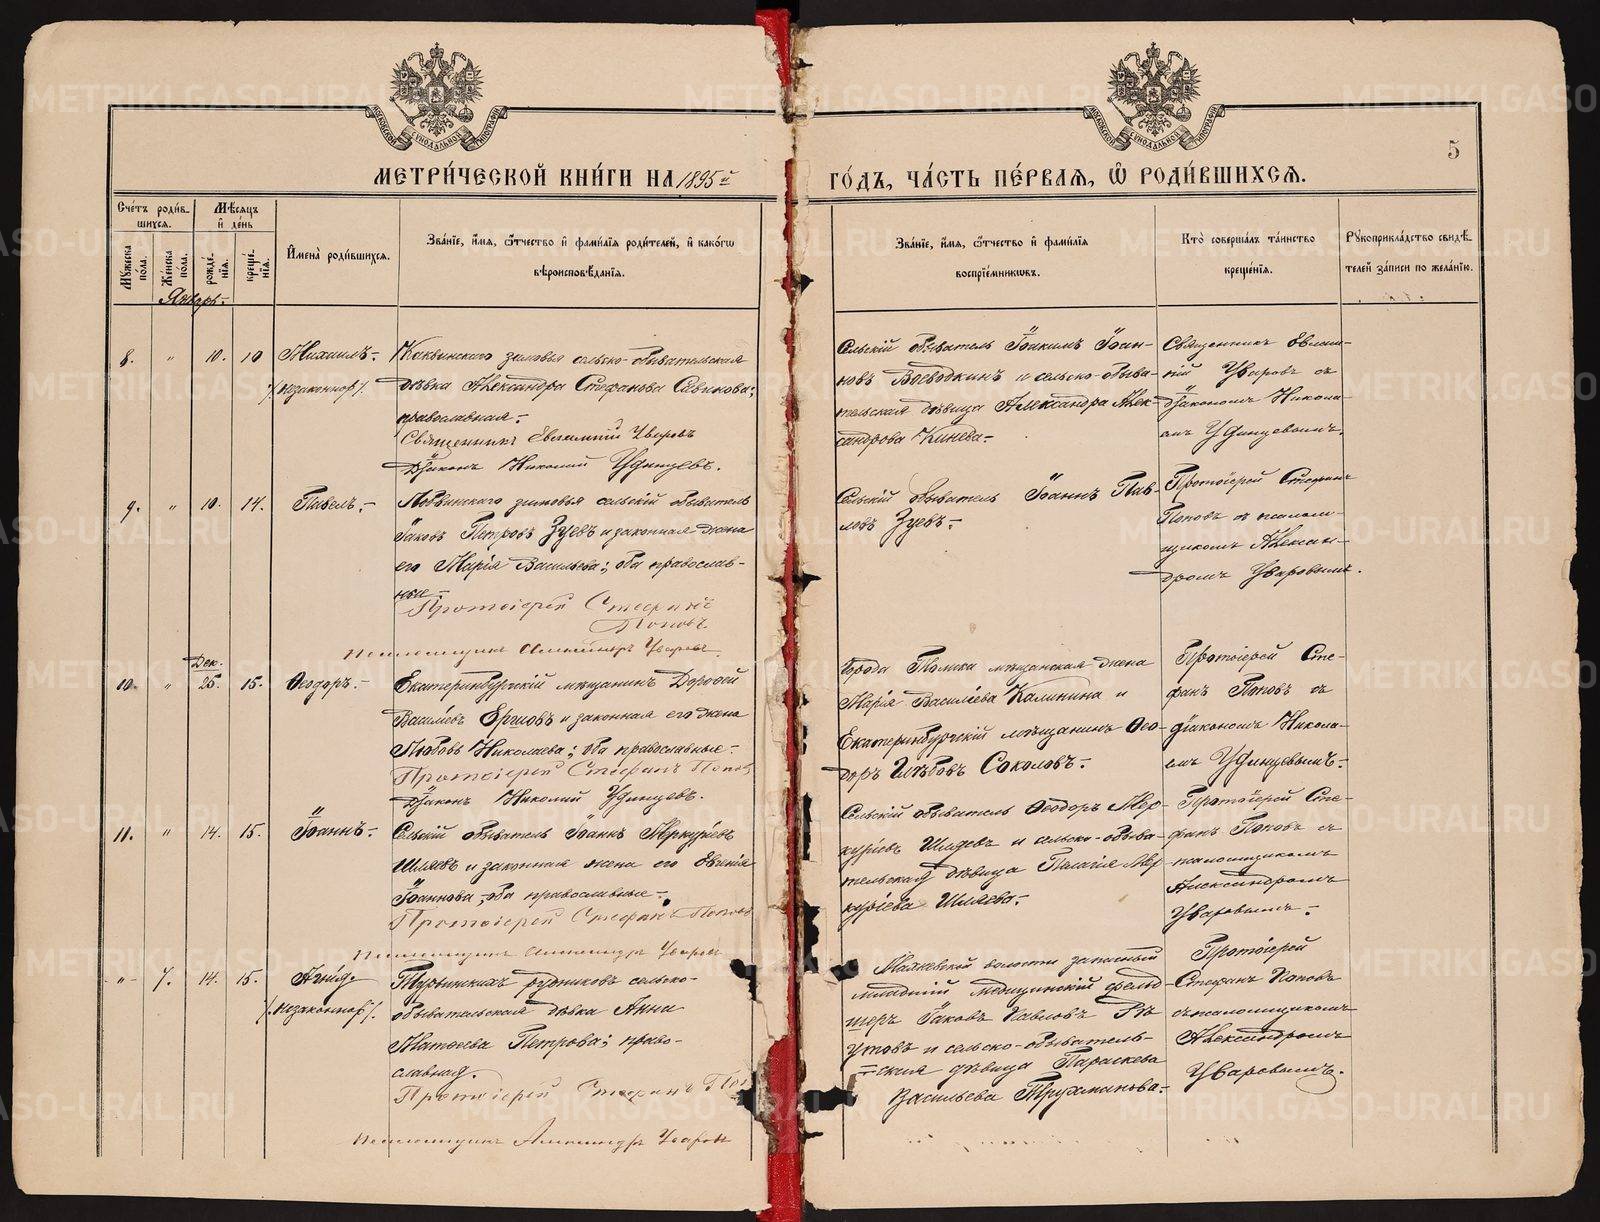 МЕТРИ́ЧЕСКОЙ КНИ́ГИ НА 1895й
ГО́ДЪ, ЧА́СТЬ ПЕ́РВАѦ, Ѡ҆ РОДИ́ВШИХСѦ.
5
МОСКОВСКОЙ СѴНОДАЛЬНОЙ ТИПОГРАФІИ
МОСКОВСКОЙ СѴНОДАЛЬНОЙ ТИПОГРАФІИ
Сче́тъ роди́в-
шихсѧ.
Мꙋ́жеска по́ла.
Же́нска по́ла.
Мѣ́сѧцъ
и҆ де́нь
рожде́-нїѧ.
креще́-нїѧ.
И҆мена̀ роди́вшихсѧ.
Зва́нїе, и҆́мѧ, ѻ҆́тчество и҆ фами́лїѧ роди́телей, и҆ како́гѡ
вѣроисповѣ́данїѧ.
Зва́нїе, и҆́мѧ, ѻ҆́тчество и҆ фами́лїѧ
воспрїе́мникѡвъ.
Кто̀ соверша́лъ та́инство
креще́нїѧ.
Рꙋкоприкла́дство свидѣ́-
телей за́писи по жела́нїю.
Январь.-
8. " 10. 10 Михаилъ.-
/незаконнор/.
Каквинскаго зимовья сельско-обывательская
дѣвка Александра Стефанова Савинова;
православная.-
Священникъ Евлампій Уваровъ
Діаконъ Николай Удинцевъ.
Сельскій обыватель Іоакимъ Іоан-
новъ Воеводкинъ и сельско-обыва-
тельская дѣвица Александра Алек-
сандрова Кинева.-
Священникъ Евлам-
пій Уваровъ съ
діакономъ Никола-
емъ Удинцевымъ.
9. " 10. 14. Павелъ.-
Лобвинскаго зимовья сельскій обыватель
Іаковъ Петровъ Зуевъ и законная жена
его Марія Васильева; оба православ-
ные.-
Протоіерей Стефанъ
Поповъ
Псаломщикъ Александръ Уваровъ.
Сельскій обыватель Іоаннъ Пав-
ловъ Зуевъ.-
Протоіерей Стефанъ
Поповъ съ псалом-
щикомъ Алексан-
дромъ Уваровымъ.
10. " Дек. 25. 15. Ѳеодоръ.-
Екатеринбургскій мѣщанинъ Дороѳей
Василіевъ Ергиовъ и законная его жена
Любовь Николаева; оба православные.-
Протоіерей Стефанъ Поповъ
Діаконъ Николай Удинцевъ.
Города мѣщанская жена
Марія Василіева Калинина и
Екатеринбургскій мѣщанинъ Ѳео-
доръ Глѣбовъ Соколовъ.-
Протоіерей Сте-
фанъ Поповъ съ
діакономъ Никола-
емъ Удинцевымъ.-
11. " 14. 15. Іоаннъ.-
Сельскій обыватель Іоаннъ Меркуріевъ
Шляевъ и законная жена его Евгенія
Іоаннова; оба православные.-
Протоіерей Стефанъ Поповъ
Псаломщикъ Александръ Уваровъ
Сельскій обыватель Ѳеодоръ Мер-
куріевъ Шляевъ и сельско-обыва-
тельская дѣвица Пелагія Мер-
куріева Шляева.-
Протоіерей Сте-
фанъ Поповъ съ
псаломщикомъ
Александромъ
Уваровымъ.-
"- 7. 14. 15. Агнія.
/незаконнор/.
Турьинскихъ рудниковъ сельско-
обывательская дѣвка Анна
Матѳеева Петрова; право-
славная.
Протоіерей Стефанъ
Псаломщикъ Александръ Уваровъ
Махневской волости запасный
младшій медицинскій фельд-
шеръ Іаковъ Павловъ
и сельско-обыватель-
ская дѣвица Параскева
Васильева Трухманова.-
Протоіерей
Стефанъ Поповъ
съ псаломщикомъ
Александромъ
Уваровымъ.
METRIKI.GASO-URAL.RU